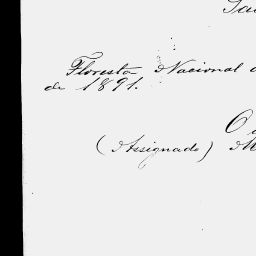 Floresta Nacional
de 1891.
(Assignado)